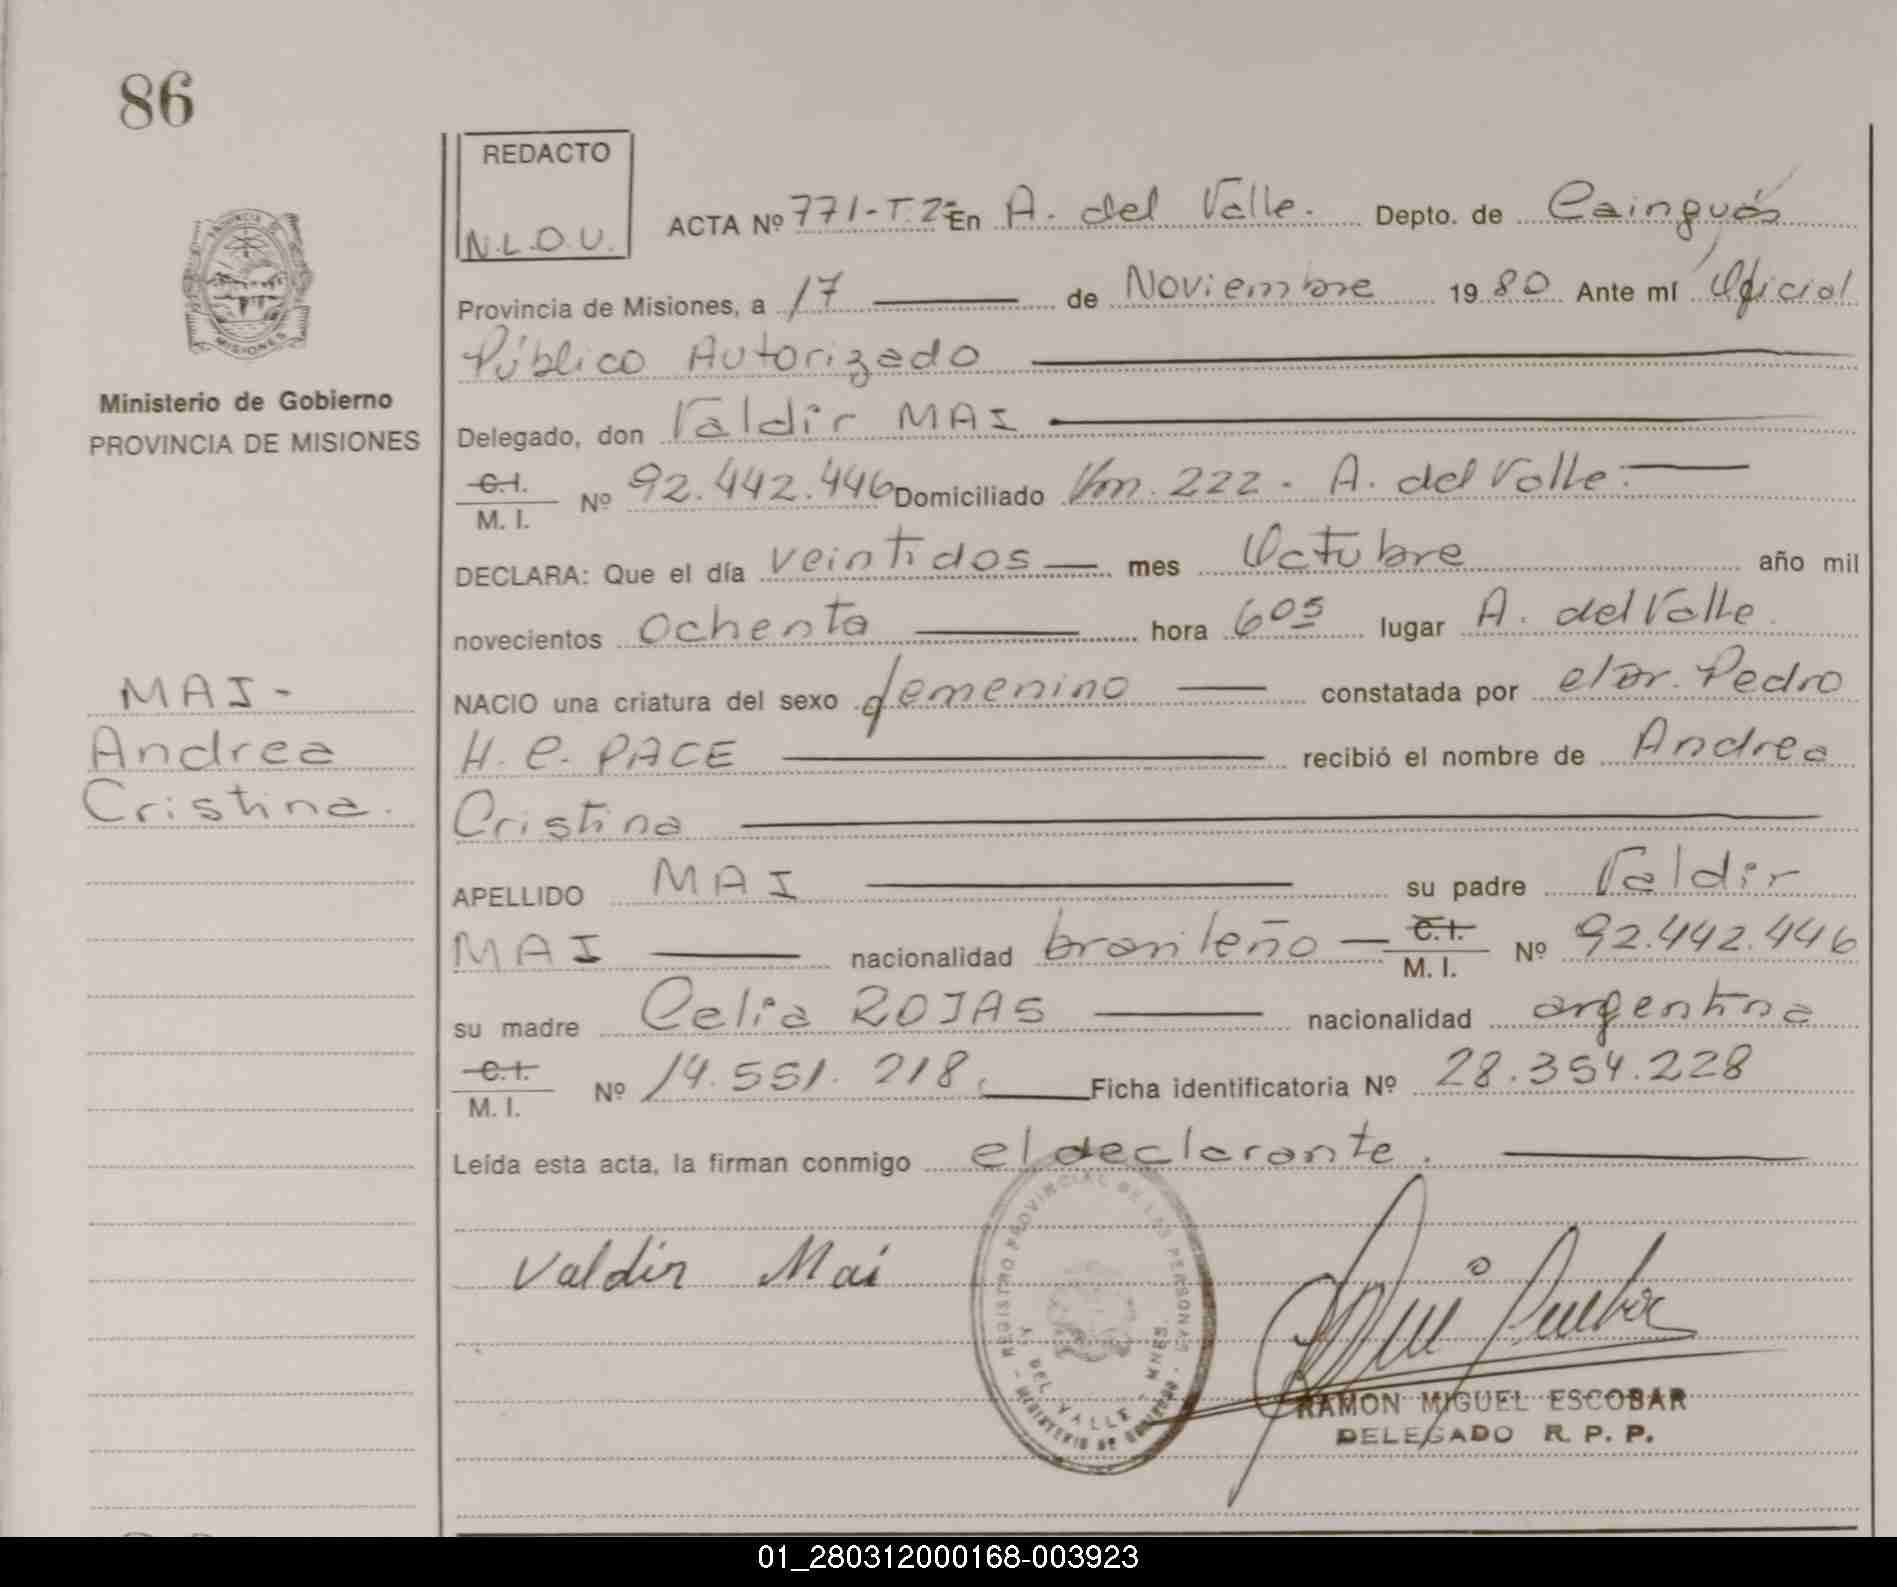 86
REDACTO
N.L.O.U.
ACTA Nº 771-T.2º En A. del Valle. Depto. de Cainguás
Provincia de Misiones, a 17 de Noviembre 1980 Ante mí Oficial
Público Autorizado
PROVINCIA DE MISIONES
Ministerio de Gobierno
PROVINCIA DE MISIONES
Delegado, don Valdir MAI
C.I. / M. I. Nº 92.442.446 Domiciliado Km. 222 - A. del Valle.
DECLARA: Que el día veintidos mes Octubre año mil
novecientos ochenta hora 6 05 lugar A. del Valle.
MAI-
Andrea
Cristina.
NACIO una criatura del sexo femenino constatada por el Dr. Pedro
H. C. PACE recibió el nombre de Andrea
Cristina
APELLIDO MAI su padre Valdir
MAI nacionalidad brasileño C.I. / M. I. Nº 92.442.446
su madre Celia ROJAS nacionalidad argentina
C.I. / M. I. Nº 14.551.218. Ficha identificatoria Nº 28.354.228
Leída esta acta, la firman conmigo el declarante.
Valdir Mai
REGISTRO PROVINCIAL DE LAS PERSONAS
A. DEL VALLE - MNES.
MINISTERIO DE GOBIERNO
RAMON MIGUEL ESCOBAR
DELEGADO R. P. P.
01_280312000168-003923